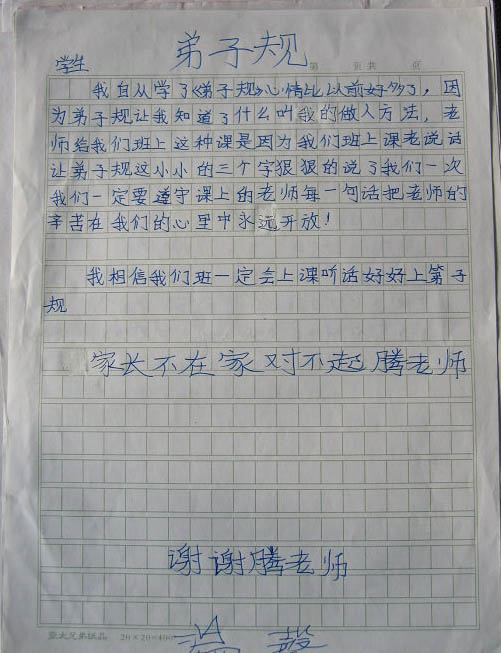 弟子规
第 页 共 页
学生
我自从学了《弟子规》心情比以前好多了，因
为弟子规让我知道了什么叫我的做人方法，老
师给我们班上这种课是因为我们班上课老说话
让弟子规这小小的三个字狠狠的说了我们一次
我们一定要遵守课上的老师每一句话把老师的
辛苦在我们的心里中永远开放！
我相信我们班一定会上课听话好好上第子
规
家长不在家对不起腾老师
谢谢腾老师
20×20=400